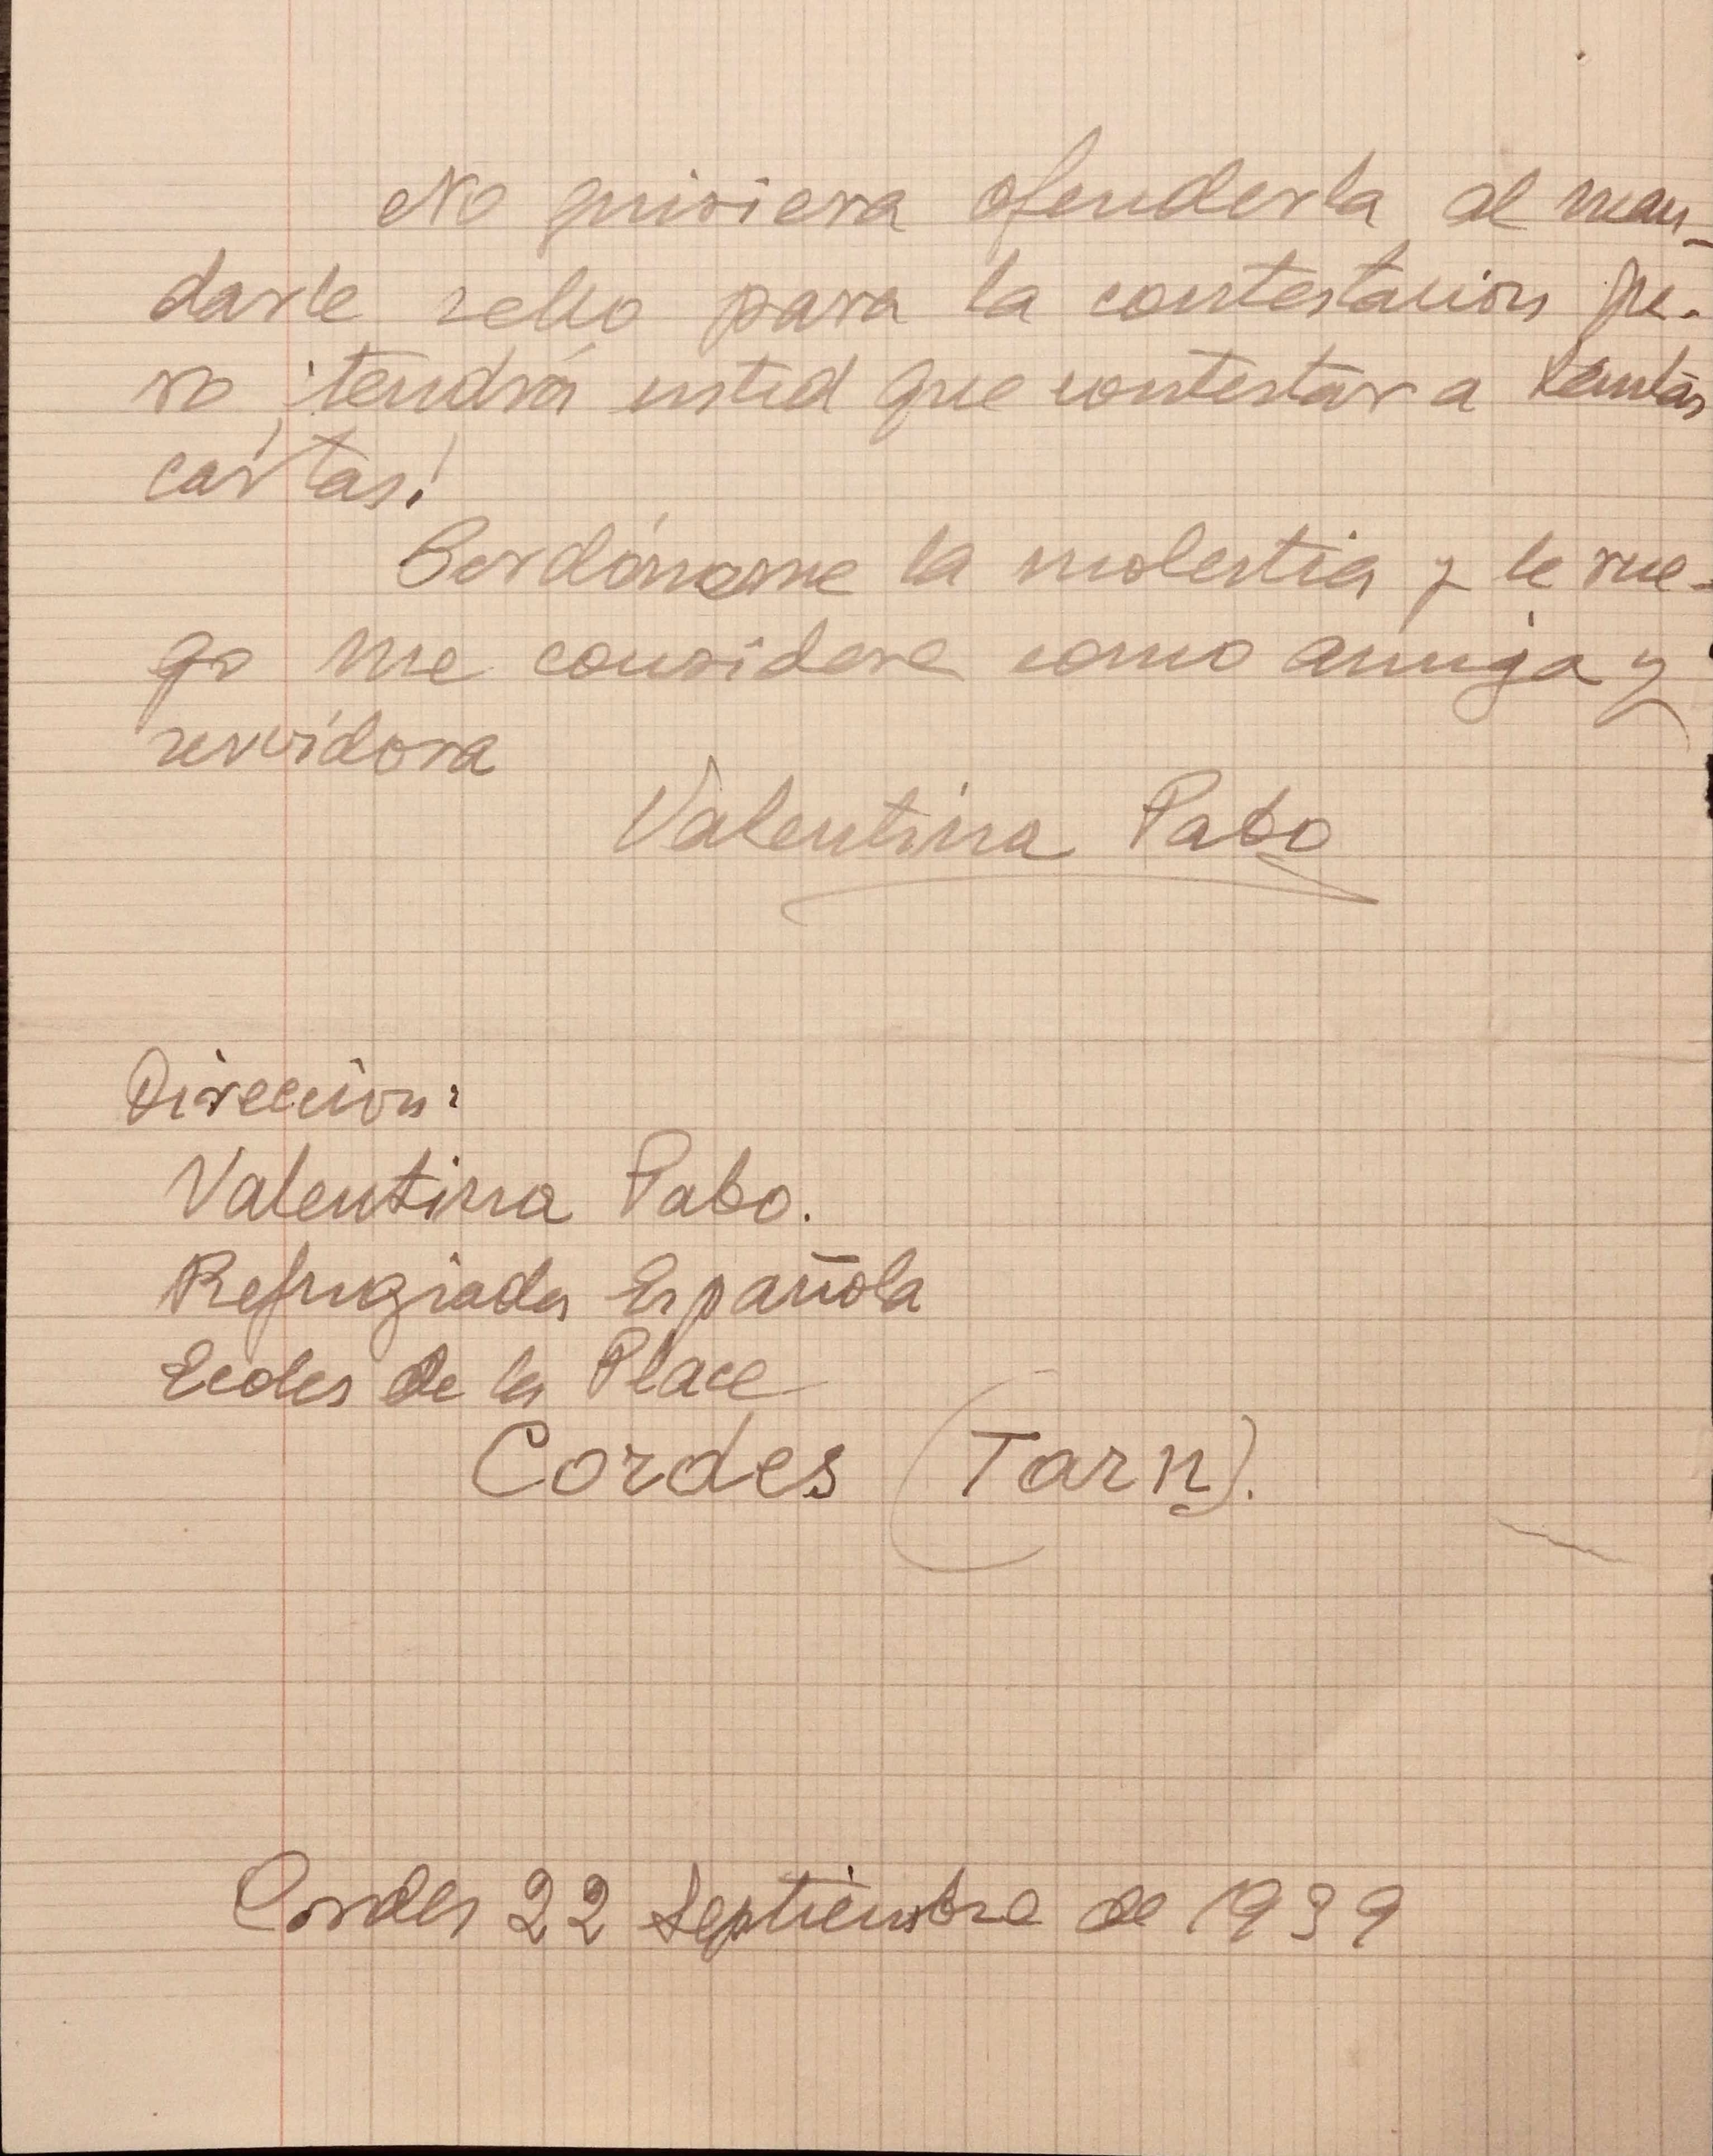 No quisiera ofenderla al man-
darle sello para la contestacion pe-
ro ¡tendrá usted que contestar a tantas
cartas!
Perdóneme la molestia y le rue-
go me considere como amiga y
servidora
Valentina Pabo
Direccion:
Valentina Pabo.
Refugiada Española
Ecoles de la Place
Cordes (Tarn).
Cordes 22 Septiembre de 1939